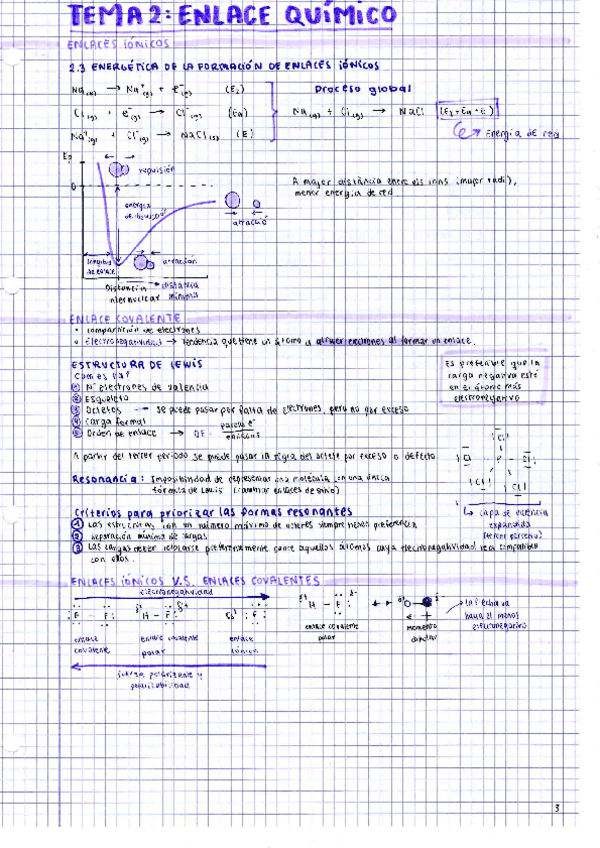 TEMA 2: ENLACE QUÍMICO
ENLACES IÓNICOS
2.3 ENERGÉTICA DE LA FORMACIÓN DE ENLACES IÓNICOS
Na(s) → Na⁺(g) + e⁻(g) (E₁) Proceso global
Cl(g) + e⁻(g) → Cl⁻(g) (Ea) Na(g) + Cl(g) → NaCl
Na⁺(g) + Cl⁻(g) → NaCl(s) (E) Energía de red
Ep
repulsión
0
A major distància entre els ions (major radi),
menor energia de red
energía
atracció
longitud
de enlace
atracción
Distancia
internuclear mínima
ENLACE COVALENTE
• compartición de electrones
• Electronegatividad → tendencia que tiene un átomo a atraer electrones al formar un enlace.
ESTRUCTURA DE LEWIS
Es preferible que la
carga negativa esté
en el átomo más
electronegativo
① Nº electrones de valencia
② Esqueleto
③ Octetos → se puede pasar por falta de electrones, pero no por exceso
④ Carga formal
⑤ Orden de enlace → OE =
A partir del tercer periodo se puede pasar la regla del octeto por exceso o defecto
Resonancia: Imposibilidad de representar una molécula con una única
fórmula de Lewis (cambiar enlaces de sitio)
Cl
Cl P Cl
Cl Cl
capa de valencia
expandida
Criterios para priorizar las formas resonantes
① Las estructuras con un número máximo de octetos siempre tienen preferencia
② separación mínima de cargas
③ Las cargas deben colocarse preferentemente sobre aquellos átomos cuya electronegatividad sea compatible
con ellos.
ENLACES IÓNICOS V.S. ENLACES COVALENTES
electronegatividad
F - F H - F
H - F
la flecha va
hacia el menos
electronegativo
enlace
covalente
enlace covalente
polar
enlace
iónico
enlace covalente
polar
momento
dipolar
3